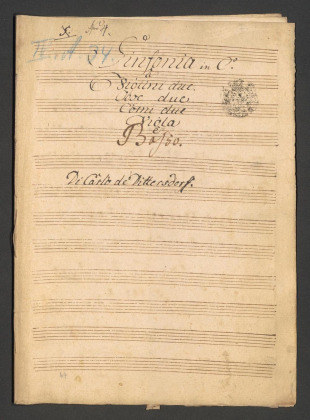 34
Sinfonia in C.
a
Violini due.
Oboe due
Corni due
Viola
e
Basso.
Di Carlo de Dittersdorf.